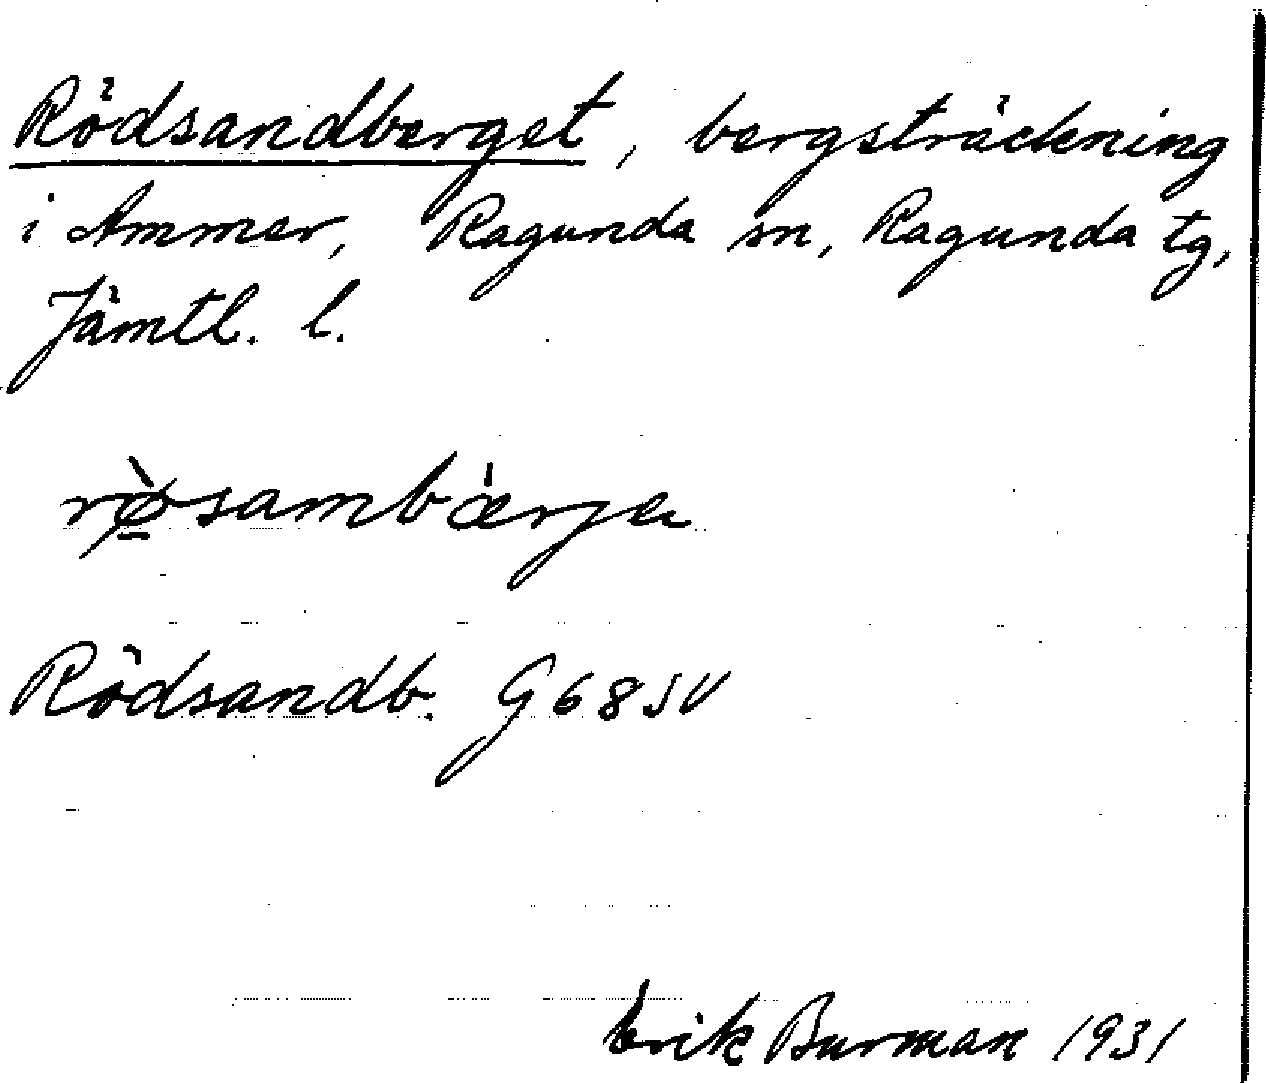 Rödsandberget, bergsträckning
i Ammer, Ragunda sn, Ragunda tg,
Jämtl. l.
rø̠̀sambæ̀rjeı
Rödsandb. G68SV
Erik Burman 1931